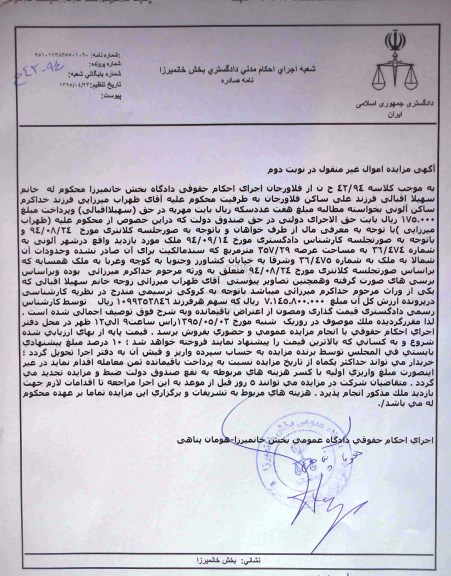 شماره نامه: ۹۵۱۰۱۱۳۸۳۵۵۰۱۰۹۰
شماره پرونده:
شماره بایگانی شعبه:
تاریخ تنظیم: ۱۳۹۵/۰۴/۲۲
پیوست:
شعبه اجرای احکام مدنی دادگستری بخش خانمیرزا
نامه صادره
دادگستری جمهوری اسلامی
ایران
آگهی مزایده اموال غیر منقول در نوبت دوم
به موجب کلاسه ۴۲/۹۴ ح ن از فلاورجان اجرای احکام حقوقی دادگاه بخش خانمیرزا محکوم له خانم
سهیلا اقبالی فرزند علی ساکن فلاورجان به طرفیت محکوم علیه آقای طهراب میرزایی فرزند خداکرم
ساکن آلونی بخواسته مطالبه مبلغ هفت عددسکه ریال بابت مهریه در حق (سهیلااقبالی) وپرداخت مبلغ
۱۷۵.۰۰۰ ریال بابت حق الاجرای دولتی در حق صندوق دولت که دراین خصوص از محکوم علیه (طهراب
میرزایی )با توجه به معرفی مال از طرف خواهان و باتوجه به صورجلسه کلانتری مورخ ۹۴/۰۸/۲۴ و
باتوجه به صورتجلسه کارشناس دادگستری مورخ ۹۴/۰۹/۱۴ ملک مورد بازدید واقع درشهر آلونی به
شماره ۳۶/۴۷۴ به مساحت عرصه ۳۵۷/۲۹ مترمربع که سندمالکیت برای آن صادر نشده وحدودات آن
شمالا به ملک به شماره ۳۶/۴۷۵ وشرقا به خیابان کشاورز وجنوبا به کوچه وغربا به ملک همسایه که
براساس صورتجلسه کلانتری مورخ ۹۴/۰۸/۲۴ متعلق به ورثه مرحوم خداکرم میرزائی بوده وبراساس
بررسی های صورت گرفته وهمچنین تصاویر پیوستی آقای طهراب میرزائی زوجه خانم سهیلا اقبالی که
یکی از وراث مرحوم خداکرم میرزائی میباشد باتوجه به کروکی ترسیمی مندرج در نظریه کارشناسی
درپرونده ارزش کل آن مبلغ ۷.۱۴۵.۸۰۰.۰۰۰ ریال که سهم هرفرزند ۱۰۹۹۳۵۳۸۴۶ ریال توسط کارشناس
رسمی دادگستری قیمت گذاری ومصون از اعتراض باقیمانده وبه شرح فوق توصیف اجمالی شده است .
لذا مقررگردیده ملک موصوف در روزیک شنبه مورخ ۱۳۹۵/۰۵/۰۳راس ساعت۹ الی۱۲ ظهر در محل دفتر
اجرای احکام حقوقی با انجام مزایده عمومی و حضوری بفروش برسد . قیمت پایه از بهای ارزیابی شده
شروع و به کسانی که بالاترین قیمت را پیشنهاد نمایند فروخته خواهد شد ؛ ۱۰ درصد مبلغ پیشنهادی
بایستی فی المجلس توسط برنده مزایده به حساب سپرده واریز و فیش آن به دفتر اجرا تحویل گردد ؛
خریدار می تواند حداکثر یکماه از تاریخ مزایده نسبت به پرداخت باقیمانده ثمن معامله اقدام نماید در غیر
اینصورت مبلغ واریزی اولیه با کسر هزینه های مربوطه به نفع صندوق دولت ضبط و مزایده تجدید می
گردد . متقاضیان شرکت در مزایده می توانند ۵ روز قبل از موعد به این اجرا مراجعه تا اقدامات لازم جهت
بازدید ملک مذکور انجام پذیرد . هزینه های مربوط به تشریفات و برگزاری این مزایده تماما بر عهده محکوم
له می باشد/.
اجرای احکام حقوقی دادگاه عمومی بخش خانمیرزا-هومان پناهی
نشانی: بخش خانمیرزا